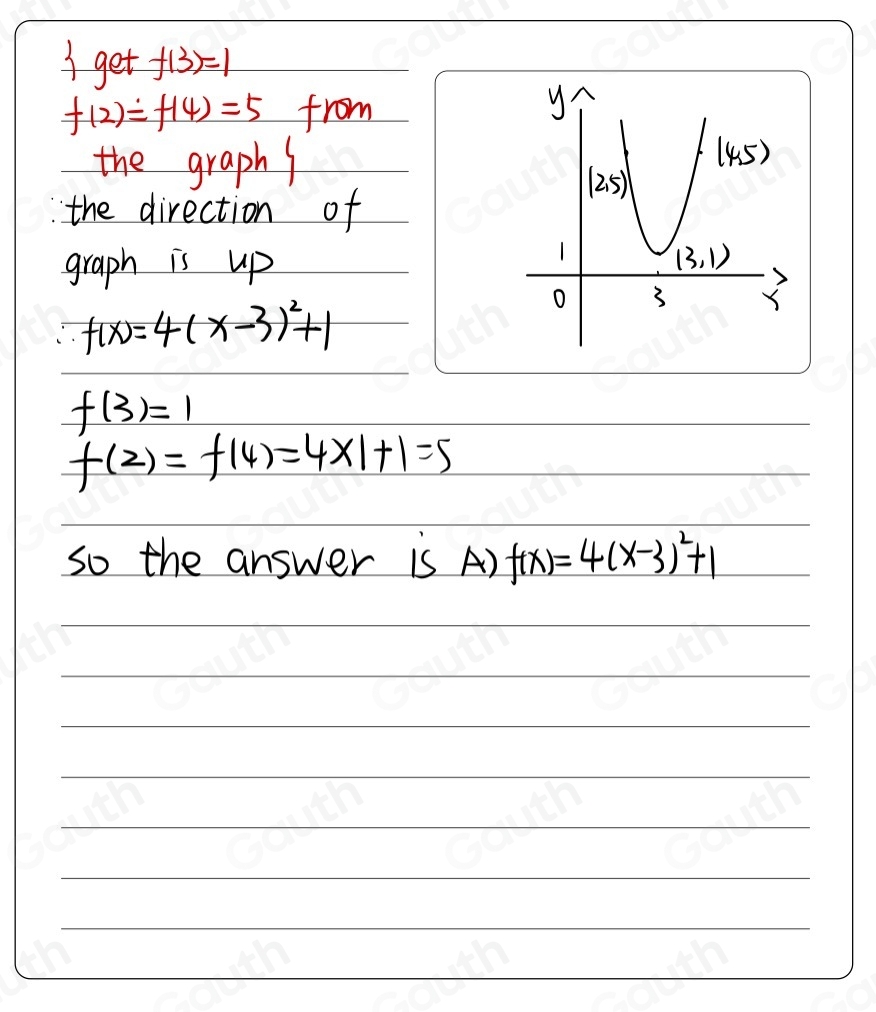 { get f(3)=1
f(2)=f(4)=5 from
the graph }
∵ the direction of
graph is up
∴ f(x)=4(x-3)²+1
f(3)=1
f(2)=f(4)=4×1+1=5
so the answer is A) f(x)=4(x-3)²+1
y
(2,5)
(4,5)
1
(3,1)
0
3
x
Gauth